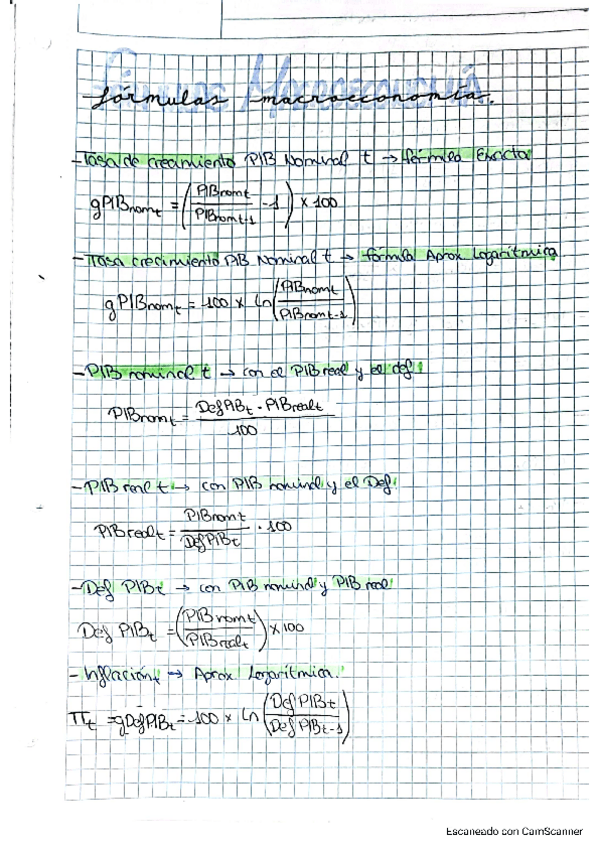 Fórmulas Macroeconomía
fórmulas macroeconomía.
- Tasa de crecimiento PIB Nominal t → fórmula Exacta
gPIBnomt = (PIBnomt / PIBnomt-1 - 1) × 100
- Tasa crecimiento PIB Nominal t → fórmula Aprox Logarítmica
gPIBnomt = 100 × ln(PIBnomt / PIBnomt-1)
- PIB nominal t → con el PIB real y el def:
PIBnomt = DefPIBt · PIBrealt / 100
- PIB real t → con PIB nominal y el Def:
PIBrealt = PIBnomt / DefPIBt · 100
- Def PIBt → con PIB nominal y PIB real
Def PIBt = (PIBnomt / PIBrealt) × 100
- Inflaciónt → Aprox Logarítmica.
Πt = gDefPIBt = 100 × Ln (DefPIBt / DefPIBt-1)
Escaneado con CamScanner